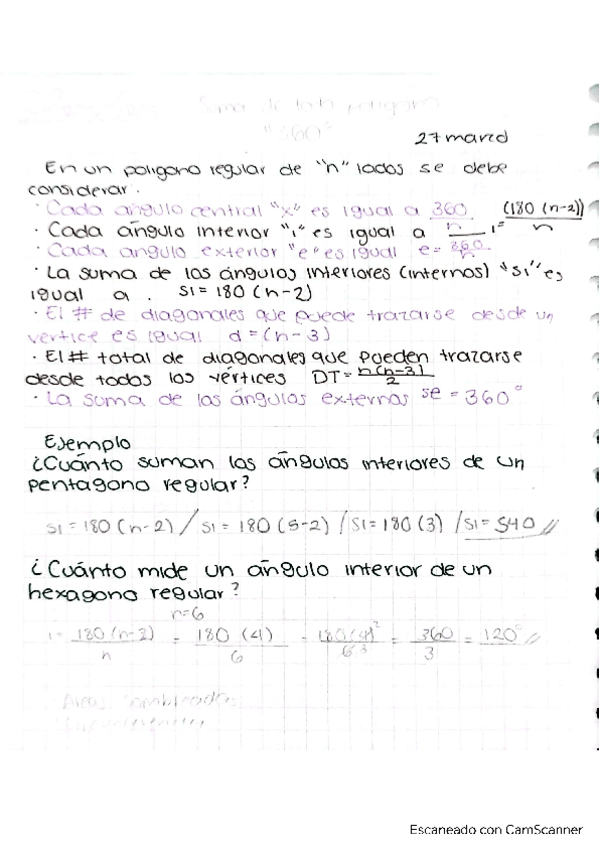 Suma de todo poligono
"360°"
27 marzo
En un poligono regular de "n" lados se debe
considerar.
· Cada angulo central "x" es igual a 360 / n
· Cada ángulo interior "i" es igual a i= (180 (n-2)) / n
· Cada angulo exterior "e" es igual e= 360 / n
· La suma de los ángulos interiores (internos) "si" es
igual a . si = 180 (n-2)
· El # de diagonales que puede trazarse desde un
vertice es igual d = (n-3)
· El # total de diagonales que pueden trazarse
desde todos los vértices DT= n(n-3) / 2
· La suma de los ángulos externos se = 360°
Ejemplo
¿Cuánto suman los ángulos interiores de un
pentagono regular?
si = 180 (n-2) / si = 180 (5-2) / si = 180 (3) / si = 540 //
¿Cuánto mide un ángulo interior de un
hexagono regular?
n=6
i = 180 (n-2) / n = 180 (4) / 6 = 180(4)² / 6 3 = 360 / 3 = 120° //
Escaneado con CamScanner